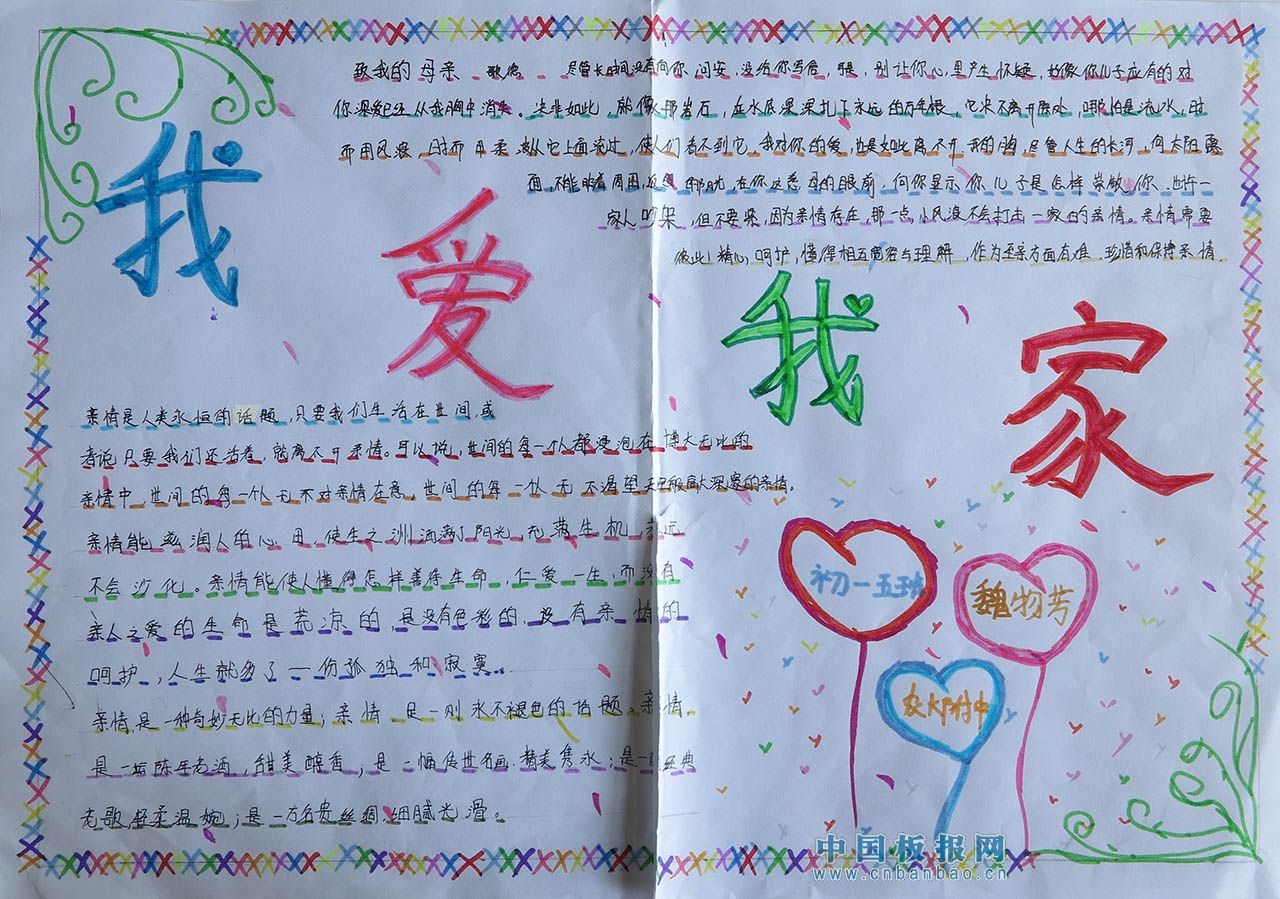 致我的母亲 歌德 尽管长时间没有向你问安,没给你写信,可是,别让你心里产生怀疑,好像你儿子应有的对
你深爱已经从我胸中消失。决非如此,就像那岩石,在水底深深扎下永远的万年根,它决不离开原地,哪怕是流水,时
而用风浪,时而用柔波从它上面流过,使人们看不到它,我对你的爱,也是如此离不开我的胸,尽管人生的长河,向太阳露
面,不能眺着周围,反复那批,在你这慈母的眼前,向你显示你儿子是怎样崇敬你 也许一
家人吵架,但不要紧,因为亲情存在,那一点小风浪不会打击一家的亲情。亲情需要
彼此精心呵护,懂得相互宽容与理解,作为至亲方面有难,珍惜和保持亲情.
我爱我家
亲情是人类永恒的话题,只要我们生活在世间,或
者说只要我们还活着,就离不开亲情。可以说,世间的每一个人都浸泡在博大无比的
亲情中,世间的每一个人无不对亲情在意,世间的每一个人无不渴望博大深邃的亲情。
亲情能滋润人的心田,使生之洲洒满了阳光,充满生机,永远
不会沙化。亲情能使人懂得怎样善待生命,仁爱一生,而没有
亲人之爱的生命是荒凉的,是没有色彩的,没有亲情的
呵护,人生就多了一份孤独和寂寞。
亲情是一种奇妙无比的力量;亲情,是一则永不褪色的话题。亲情,
是一坛陈年老酒,甜美醇香;是一幅传世名画,精美隽永;是一首经典
老歌,轻柔温婉;是一方名贵丝绸,细腻光滑。
初一五班
魏物芳
农大附中
中国板报网
www.cnbanbao.cn